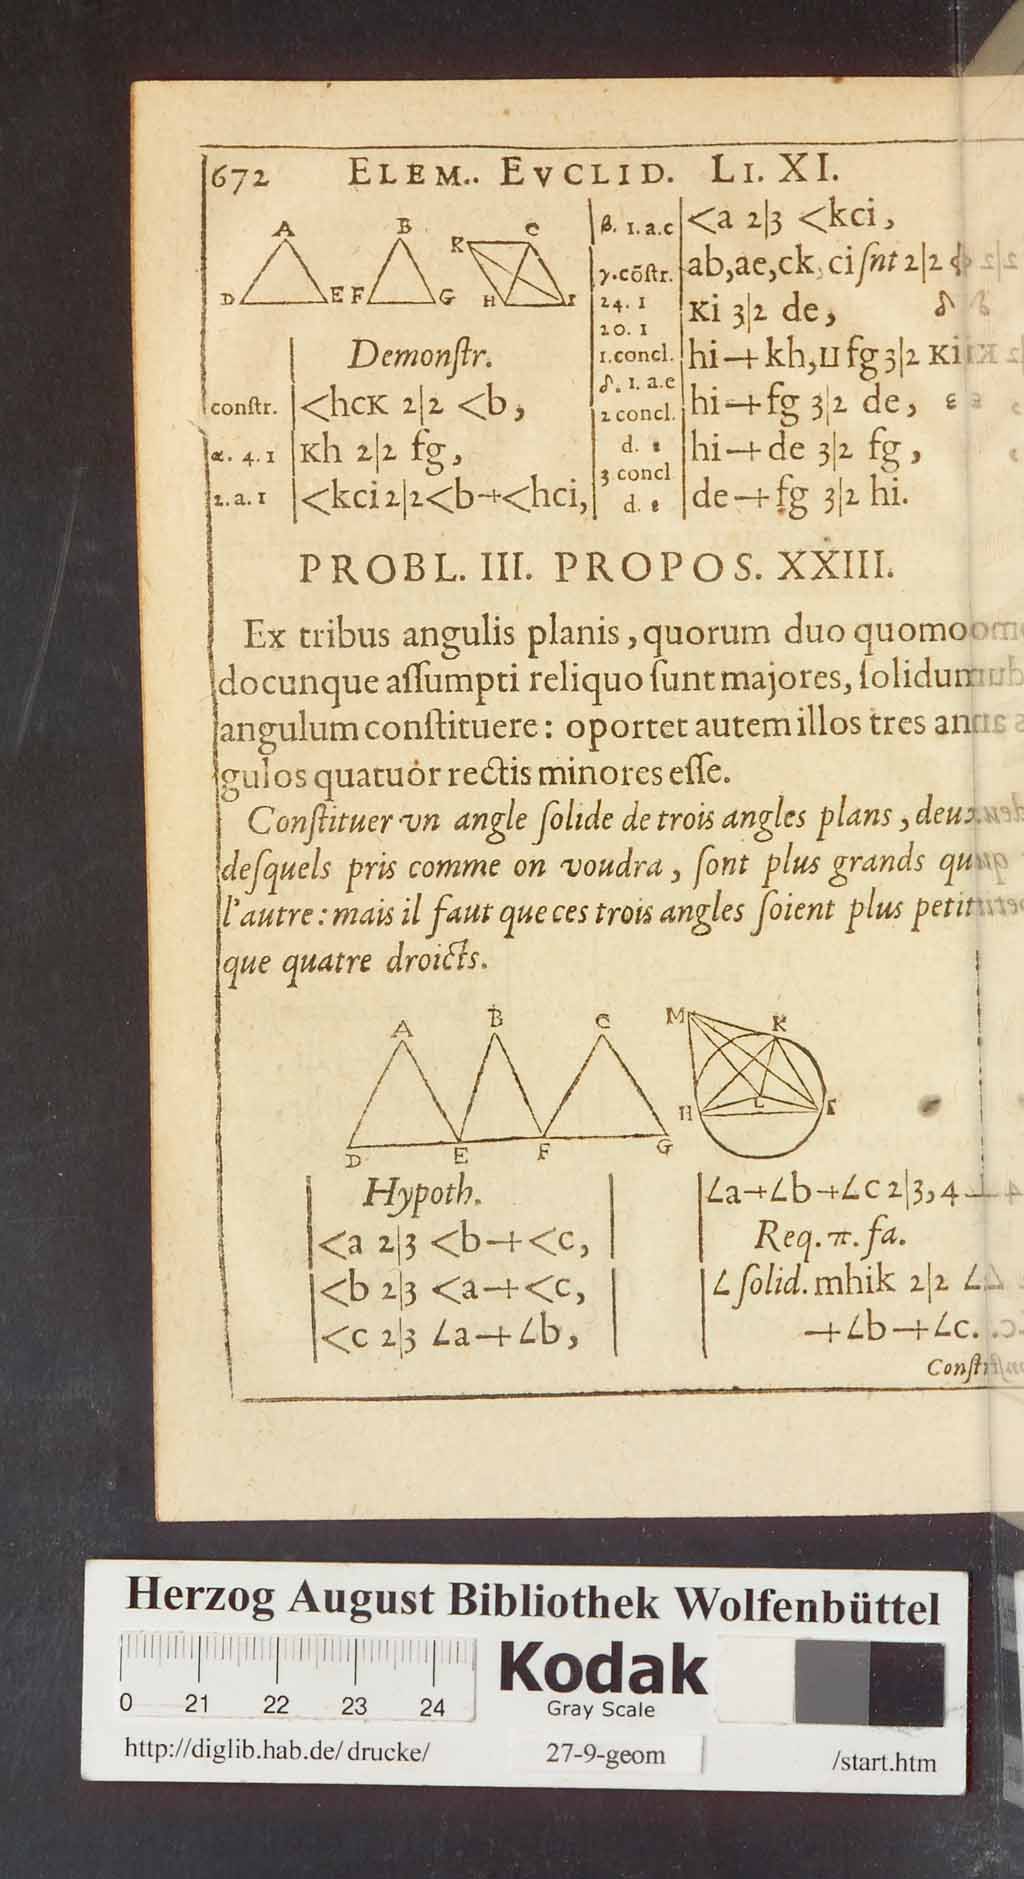 672 ELEM.. EVCLID. LI. XI.
A B K C
D E F G H I
Demonſtr.
conſtr. <hcK 2|2 <b,
α. 4. 1 Kh 2|2 fg,
2. a. 1 <kci 2|2 <b+<hci,
β. 1. a.c <a 2|3 <kci,
γ. cõſtr. ab,ae,ck, ci ſnt 2|2
24. 1 Ki 3|2 de,
20. 1
1. concl. hi+kh, II fg 3|2 Ki
1. a.e
2 concl. hi+fg 3|2 de,
d. hi+de 3|2 fg,
3 concl
d. de+fg 3|2 hi.
PROBL. III. PROPOS. XXIII.
Ex tribus angulis planis, quorum duo quomo
documque aſſumpti reliquo ſunt majores, ſolidum
angulum conſtituere: oportet autem illos tres an
gulos quatuor rectis minores eſſe.
Conſtituer vn angle ſolide de trois angles plans, deux
deſquels pris comme on voudra, ſont plus grands que
l'autre: mais il faut que ces trois angles ſoient plus petit
que quatre droicts.
A B C M K
H L I
D E F G
Hypoth.
<a 2|3 <b+<c,
<b 2|3 <a+<c,
<c 2|3 ∠a+∠b,
∠a+∠b+∠c 2|3, 4
Req. π. fa.
∠ ſolid. mhik 2|2 ∠
+∠b+∠c.
Conſtr
Herzog August Bibliothek Wolfenbüttel
0 21 22 23 24
Kodak
Gray Scale
http://diglib.hab.de/drucke/ 27-9-geom /start.htm